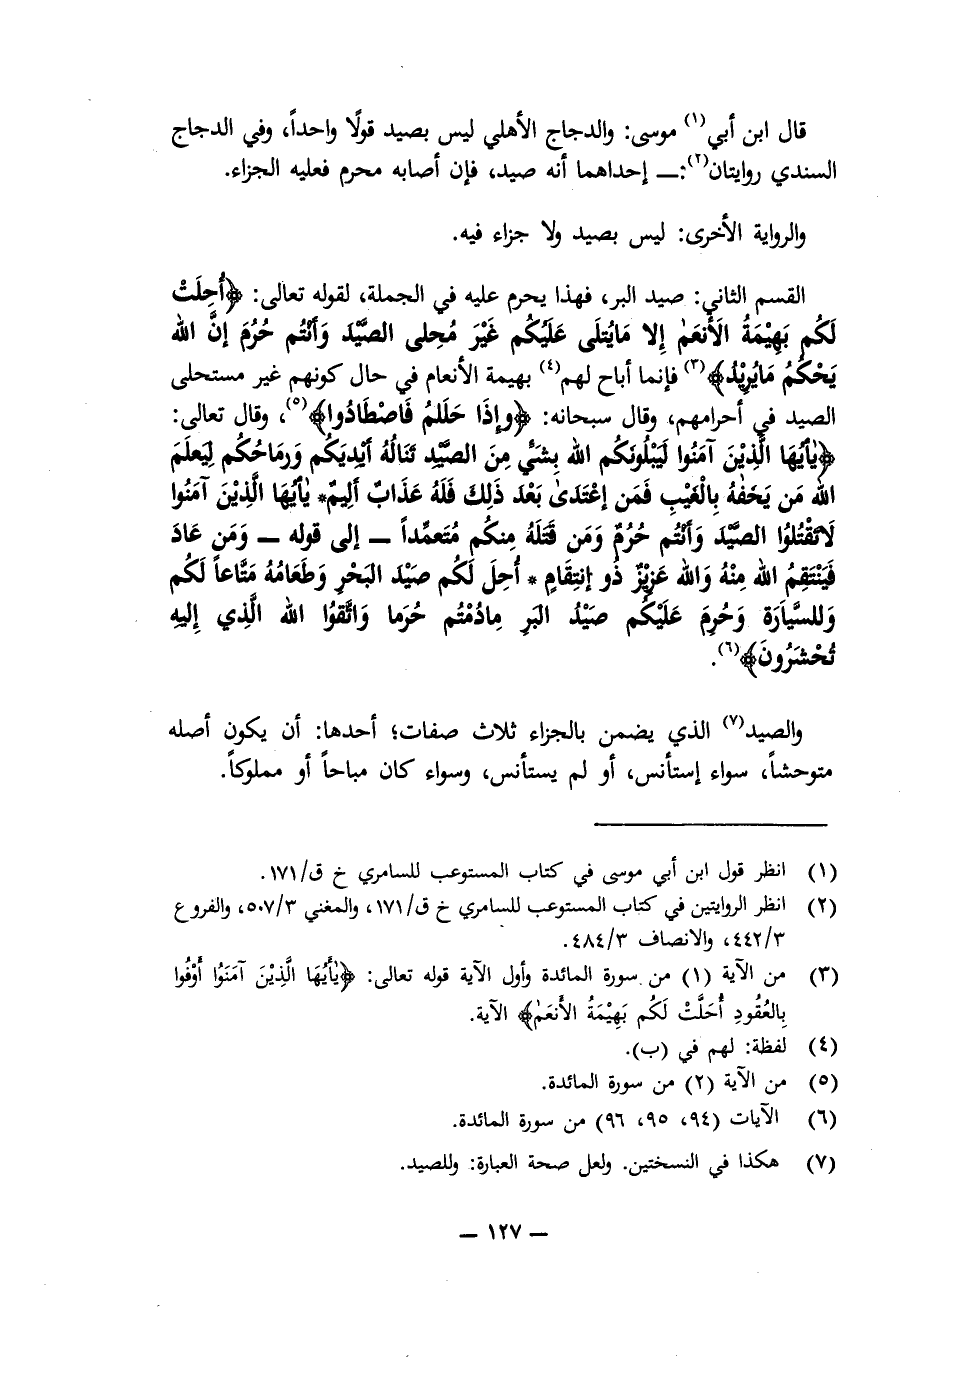 قال ابن أبي(١) موسى: والدجاج الأهلي ليس بصيد قولًا واحداً، وفي الدجاج
السندي روايتان(٢): ـــ إحداهما أنه صيد، فإن أصابه محرم فعليه الجزاء.
والرواية الأخرى: ليس بصيد ولا جزاء فيه.
القسم الثاني: صيد البر، فهذا يحرم عليه في الجملة، لقوله تعالى: ﴿أُحِلَتْ
لَكُم بَهِيْمَةُ الأَنعَمٰ إِلا مَايُتلَى عَلَيُكُم غَيْرَ مُحِلى الصَّيْدَ وَأَنْتُم حُرُمَ إنَّ الله
يَحْكُمُ مَايُرِيْدُ﴾(٣) فإنما أباح لهم(٤) بهيمة الأنعام في حال كونهم غير مستحلى
الصيد في أحرامهم، وقال سبحانه: ﴿وإِذَا حَللمُ فَاصْطَادُوا﴾(٥)، وقال تعالى:
﴿يٰأيُهَا الَّذِيْنَ آمَنُوا لَيَبْلُونَكُم الله بِشَيْءٍ مِنَ الصَّيْدِ تَنَالُهُ أَيْدِيَكُم وَرِمَاحُكُم لِيَعلَمَ
الله مَن يَخَفْهُ بِالْغَيْبِ فَمَن إعْتَدَىٰ بَعْدَ ذَلِكَ فَلَهُ عَذَابٌ أَلِيمٌ* يٰأيُهَا الَّذِيْنَ آمَنُوا
لَاتَقْتُلُوا الصَّيْدَ وَأَنْتُم حُرُمٌ وَمَن قَتَلَهُ مِنكُم مُتَعمِّداً ـــ إلى قوله ـــ وَمَن عَادَ
فَيَنْتَقِمُ الله مِنْهُ وَالله عَزِيْزٌ ذُو إنتِقَامٍ * أُحِلَ لَكُم صَيْدَ البَحْرِ وَطَعَامُهُ مَتَّاعاً لَكُم
وَللسَّيَارَةِ وَحُرِمَ عَلَيْكُم صَيْدُ البَرِ مِادُمْتُم حُرَما وَاتَّقوُا الله الَّذِي إِليهِ
تُحْشَرُونَ﴾(٦).
والصيد(٧) الذي يضمن بالجزاء ثلاث صفات؛ أحدها: أن يكون أصله
متوحشاً، سواء إستأنس، أو لم يستأنس، وسواء كان مباحاً أو مملوكاً.
(١) انظر قول ابن أبي موسى في كتاب المستوعب للسامري خ ق/١٧١.
(٢) انظر الروايتين في كتاب المستوعب للسامري خ ق/١٧١، والمغني ٥٠٧/٣، والفروع
٤٤٢/٣، والانصاف ٤٨٤/٣.
(٣) من الآية (١) من سورة المائدة وأول الآية قوله تعالى: ﴿يٰأيُهَا الَّذِيْنَ آمَنَوُا أَوْفُوا
بِالعُقُودِ أُحَلَّتْ لَكُم بَهِيْمَةُ الأَنعَمٰ﴾ الآية.
(٤) لفظة: لهم في (ب).
(٥) من الآية (٢) من سورة المائدة.
(٦) الآيات (٩٤، ٩٥، ٩٦) من سورة المائدة.
(٧) هكذا في النسختين. ولعل صحة العبارة: وللصيد.
ـــ ١٢٧ ـــ